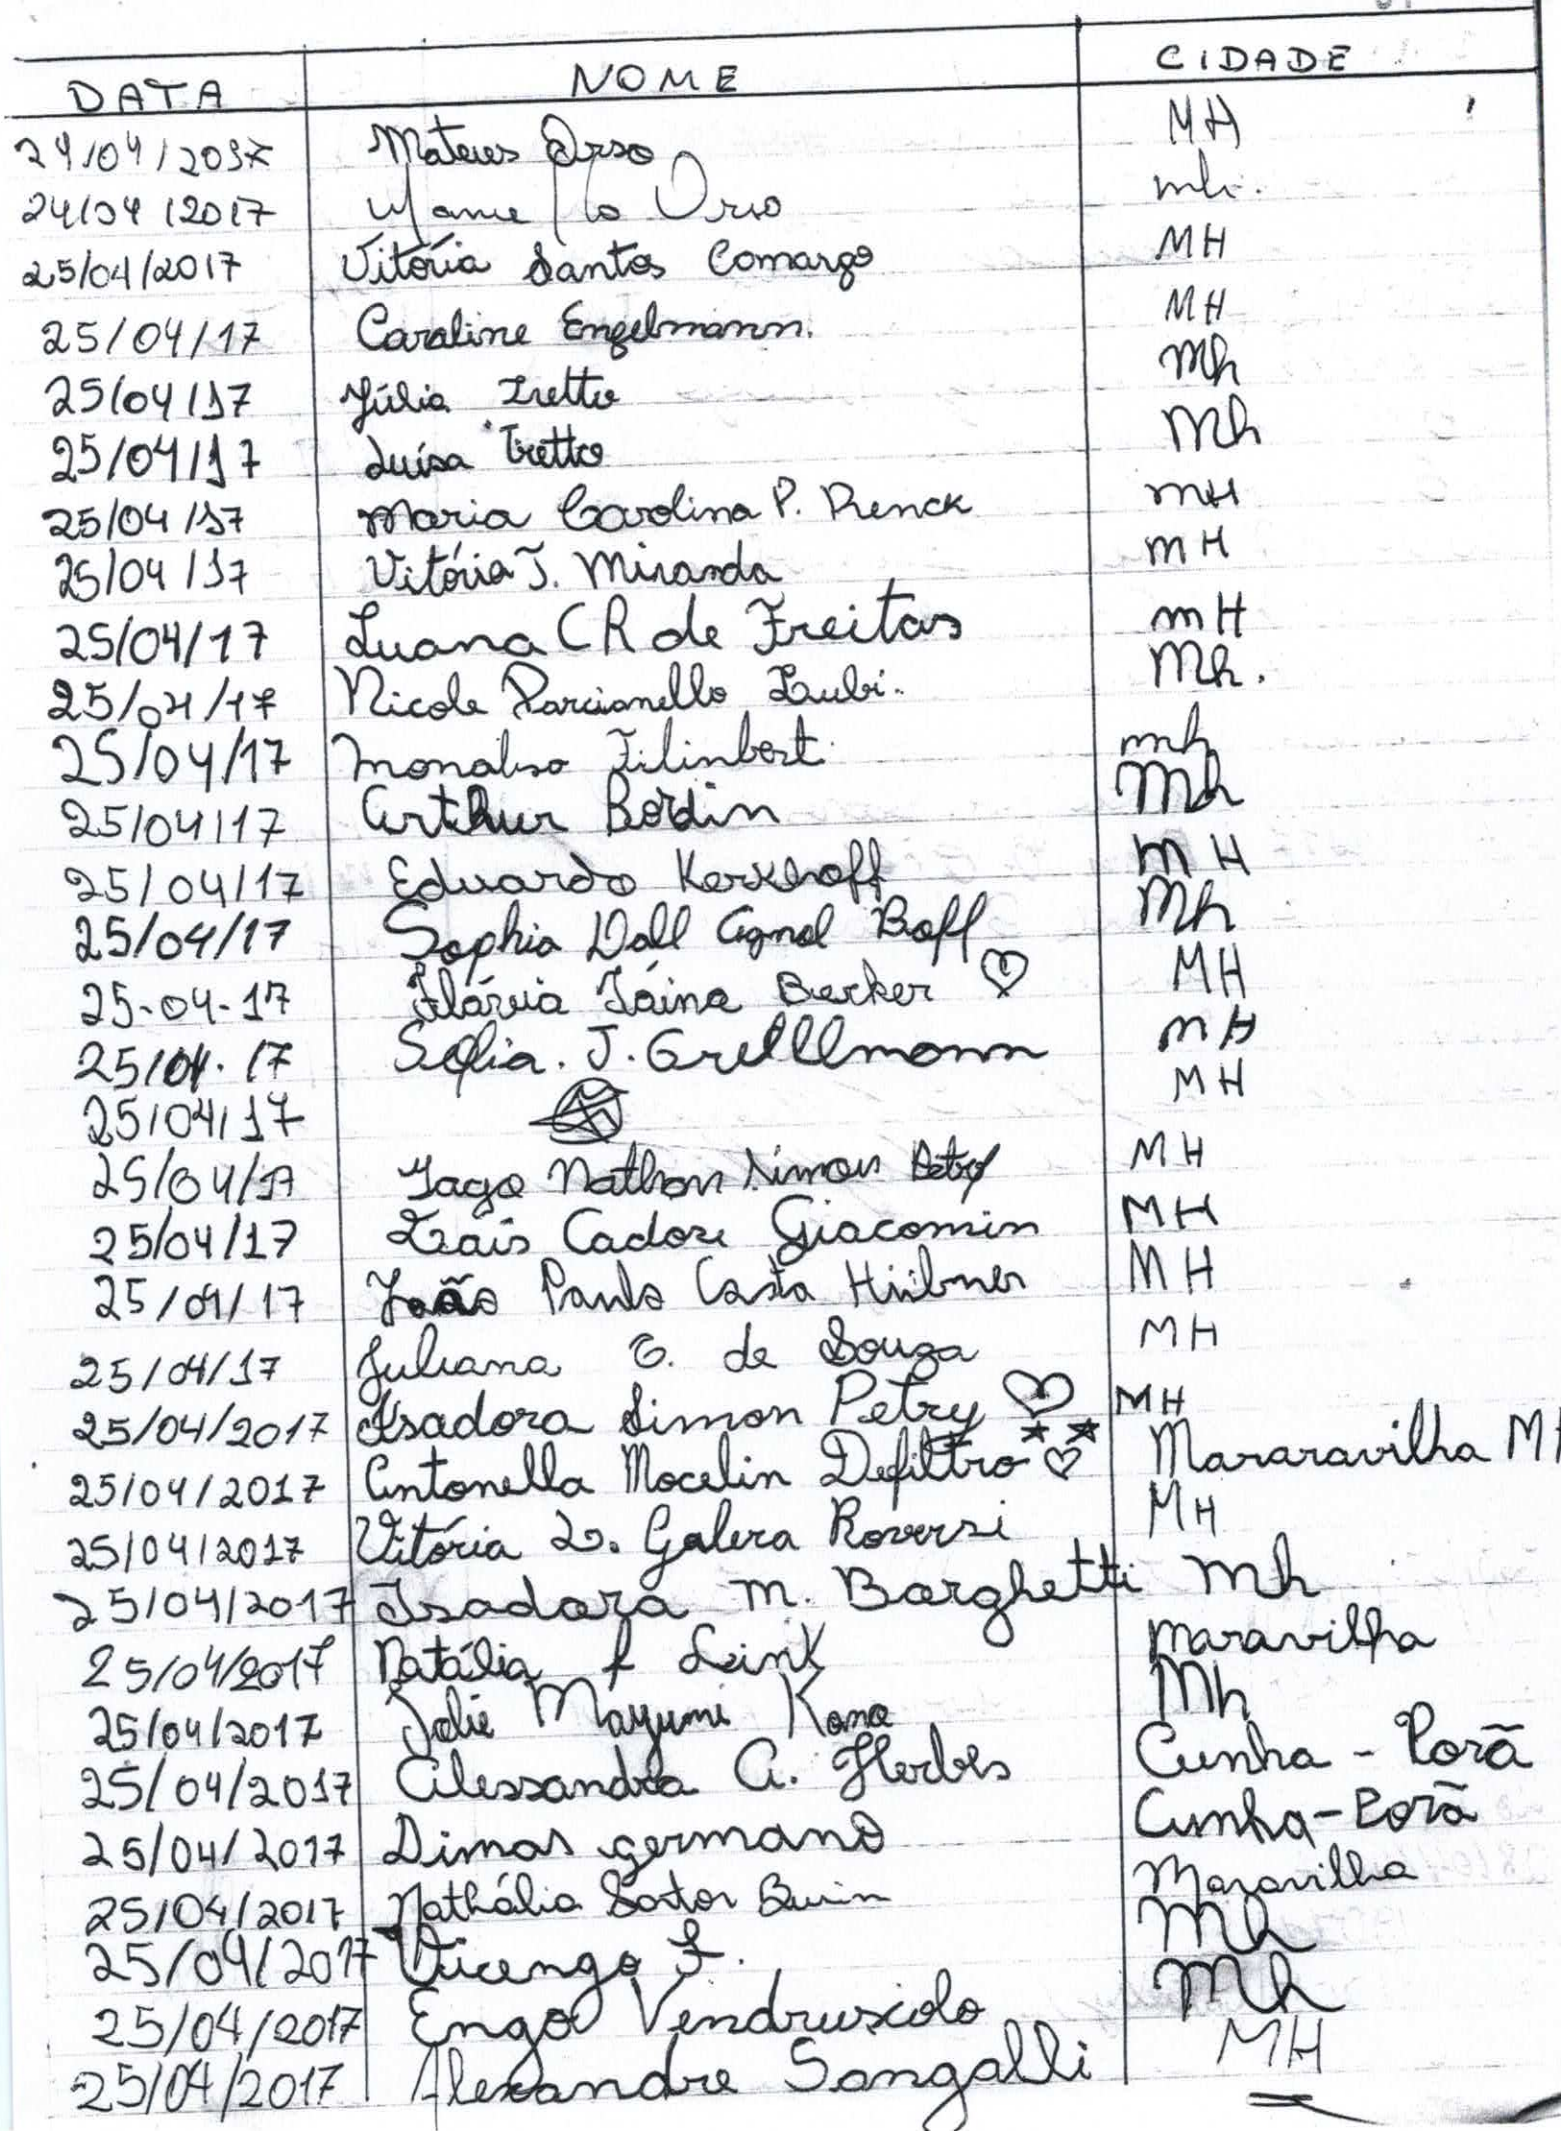 DATA NOME CIDADE
24/04/2017 Mateus Orso MH
24/04/2017 Orso mh.
25/04/2017 Vitória Santos Camargo MH
25/04/17 Caroline Engelmann. MH
25/04/17 Júlia Tretto Mh
25/04/17 Luísa Tretto Mh
25/04/17 Maria Carolina P. Renck mH
25/04/17 Vitória T. Miranda mH
25/04/17 Luana CR de Freitas mH
25/04/17 Nicole Parcianello Mh.
25/04/17 Monalisa mh
25/04/17 Arthur Bordin Mh
25/04/17 Eduardo Kerkhoff mH
25/04/17 Sophia Dall Agnol Boff Mh
25-04-17 Flávia Táina Becker MH
25/04.17 Sofia. J. Grelllmann mH
25/04/17 MH
25/04/17 Iago Nathan Simon MH
25/04/17 Laís Cadore Giacomin MH
25/04/17 João Paulo Costa Hübner MH
25/04/17 Juliana de Souza MH
25/04/2017 Isadora Simon Petry MH
25/04/2017 Antonella Mocelin Defiltro Mararavilha MH
25/04/2017 Vitória L. Galera Roversi MH
25/04/2017 Isadora M. Borghetti Mh
25/04/2017 Natália Link Maravilha
25/04/2017 Mayumi Mh
25/04/2017 Alessandra A. Herbes Cunha-Porã
25/04/2017 Dimas germano Cunha-Porã
25/04/2017 Nathália Sartor Maravilha
25/04/2017 Mh
25/04/2017 Enzo Vendruscolo Mh
25/04/2017 Alexandre Sangalli MH